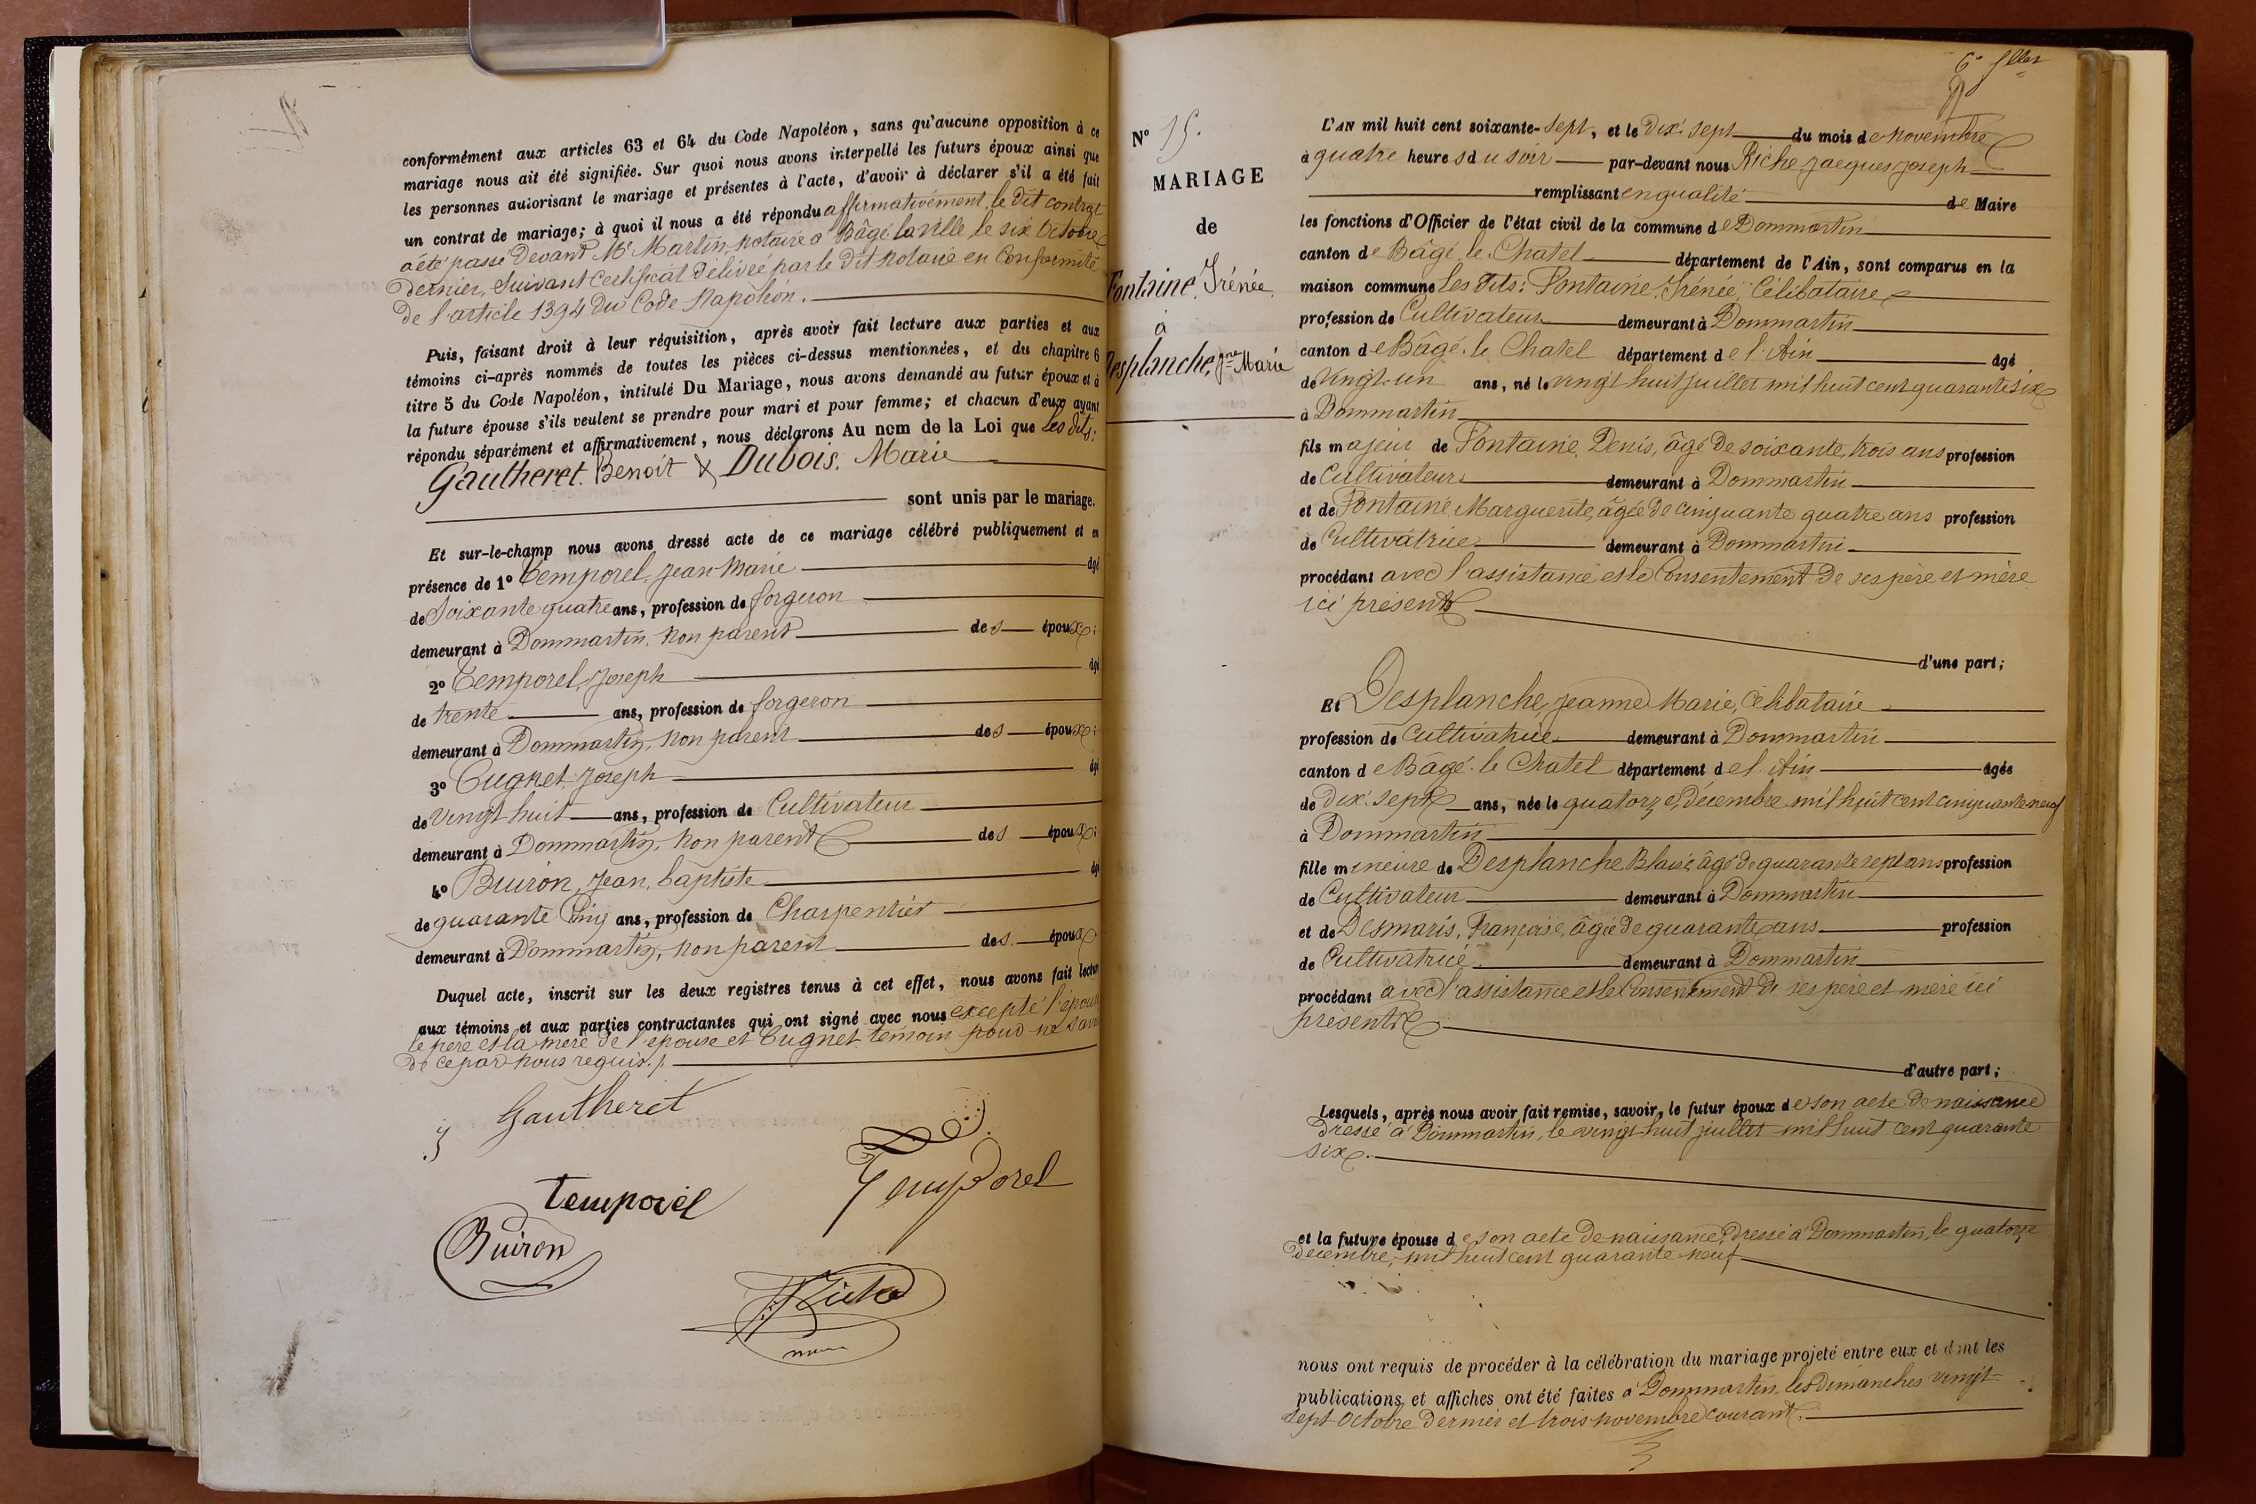 conformément aux articles 63 et 64 du Code Napoléon, sans qu'aucune opposition à ce
mariage nous ait été signifiée. Sur quoi nous avons interpellé les futurs époux ainsi que
les personnes autorisant le mariage et présentes à l'acte, d'avoir à déclarer s'il a été fait
un contrat de mariage; à quoi il nous a été répondu affirmativement, le dit contrat
a été passé devant Me Martin, notaire à Bâgé la Ville le six Octobre
dernier, suivant certificat délivré par le dit notaire en conformité
de l'article 1394 du Code Napoléon.
Puis, faisant droit à leur réquisition, après avoir fait lecture aux parties et aux
témoins ci-après nommés de toutes les pièces ci-dessus mentionnées, et du chapitre 6
titre 5 du Code Napoléon, intitulé Du Mariage, nous avons demandé au futur époux et à
la future épouse s'ils veulent se prendre pour mari et pour femme; et chacun d'eux ayant
répondu séparément et affirmativement, nous déclarons Au nom de la Loi que Les dits:
Gautheret. Benoit & Dubois. Marie
sont unis par le mariage.
Et sur-le-champ nous avons dressé acte de ce mariage célébré publiquement et en
présence de 1° Temporel, Jean Marie âgé
de Soixante quatre ans, profession de forgeron
demeurant à Dommartin, non parent des époux;
2° Temporel, Joseph âgé
de trente ans, profession de forgeron
demeurant à Dommartin, non parent des époux;
3° Cugnet Joseph âgé
de vingt huit ans, profession de Cultivateur
demeurant à Dommartin, non parent des époux;
4° Buiron, Jean, baptiste âgé
de quarante Cinq ans, profession de Charpentier
demeurant à Dommartin, non parent des époux
Duquel acte, inscrit sur les deux registres tenus à cet effet, nous avons fait lecture
aux témoins et aux parties contractantes qui ont signé avec nous excepté l'épouse
le père et la mère de l'épouse et Cugnet témoin pour ne savoir
de ce par nous requis.
Gautheret
Temporel
temporel
Buiron
Riche
6e fllet
N° 15.
MARIAGE
de
Fontaine, Irénée
à
Desplanche, Jne Marie
L'AN mil huit cent soixante-Sept, et le Dix-sept du mois de novembre
à quatre heures du soir par-devant nous Riche Jacques Joseph
remplissant en qualité de Maire
les fonctions d'Officier de l'état civil de la commune de Dommartin
canton de Bâgé-le-Chatel département de l'Ain, sont comparus en la
maison commune Les dits: Fontaine, Irénée, Célibataire
profession de Cultivateur demeurant à Dommartin
canton de Bâgé-le-Chatel département de l'Ain âgé
de Vingt-un ans, né le vingt huit juillet mil huit cent quarante six
à Dommartin
fils majeur de Fontaine, Denis, âgé de soixante, trois ans profession
de Cultivateur demeurant à Dommartin
et de Fontaine Marguerite, âgée de cinquante quatre ans profession
de Cultivatrice demeurant à Dommartin
procédant avec l'assistance et le Consentement de ses père et mère
ici présents
d'une part;
Et Desplanche, Jeanne Marie, Célibataire
profession de Cultivatrice demeurant à Dommartin
canton de Bâgé-le Chatel département de l'Ain âgée
de Dix-sept ans, née le quatorze, Décembre mil huit cent cinquante neuf
à Dommartin
fille mineure de Desplanche Blaise âgé de quarante sept ans profession
de Cultivateur demeurant à Dommartin
et de Desmaris, Françoise, âgée de quarante ans profession
de Cultivatrice demeurant à Dommartin
procédant avec l'assistance et le Consentement de ses père et mère ici
présents
d'autre part;
Lesquels, après nous avoir fait remise, savoir, le futur époux de son acte de naissance
dressé à Dommartin, le vingt huit juillet mil huit cent quarante
six.
et la future épouse de son acte de naissance, dressé à Dommartin, le quatorze
décembre, mil huit cent quarante neuf
nous ont requis de procéder à la célébration du mariage projeté entre eux et dont les
publications et affiches ont été faites à Dommartin, les Dimanches vingt
sept Octobre dernier et trois novembre courant.